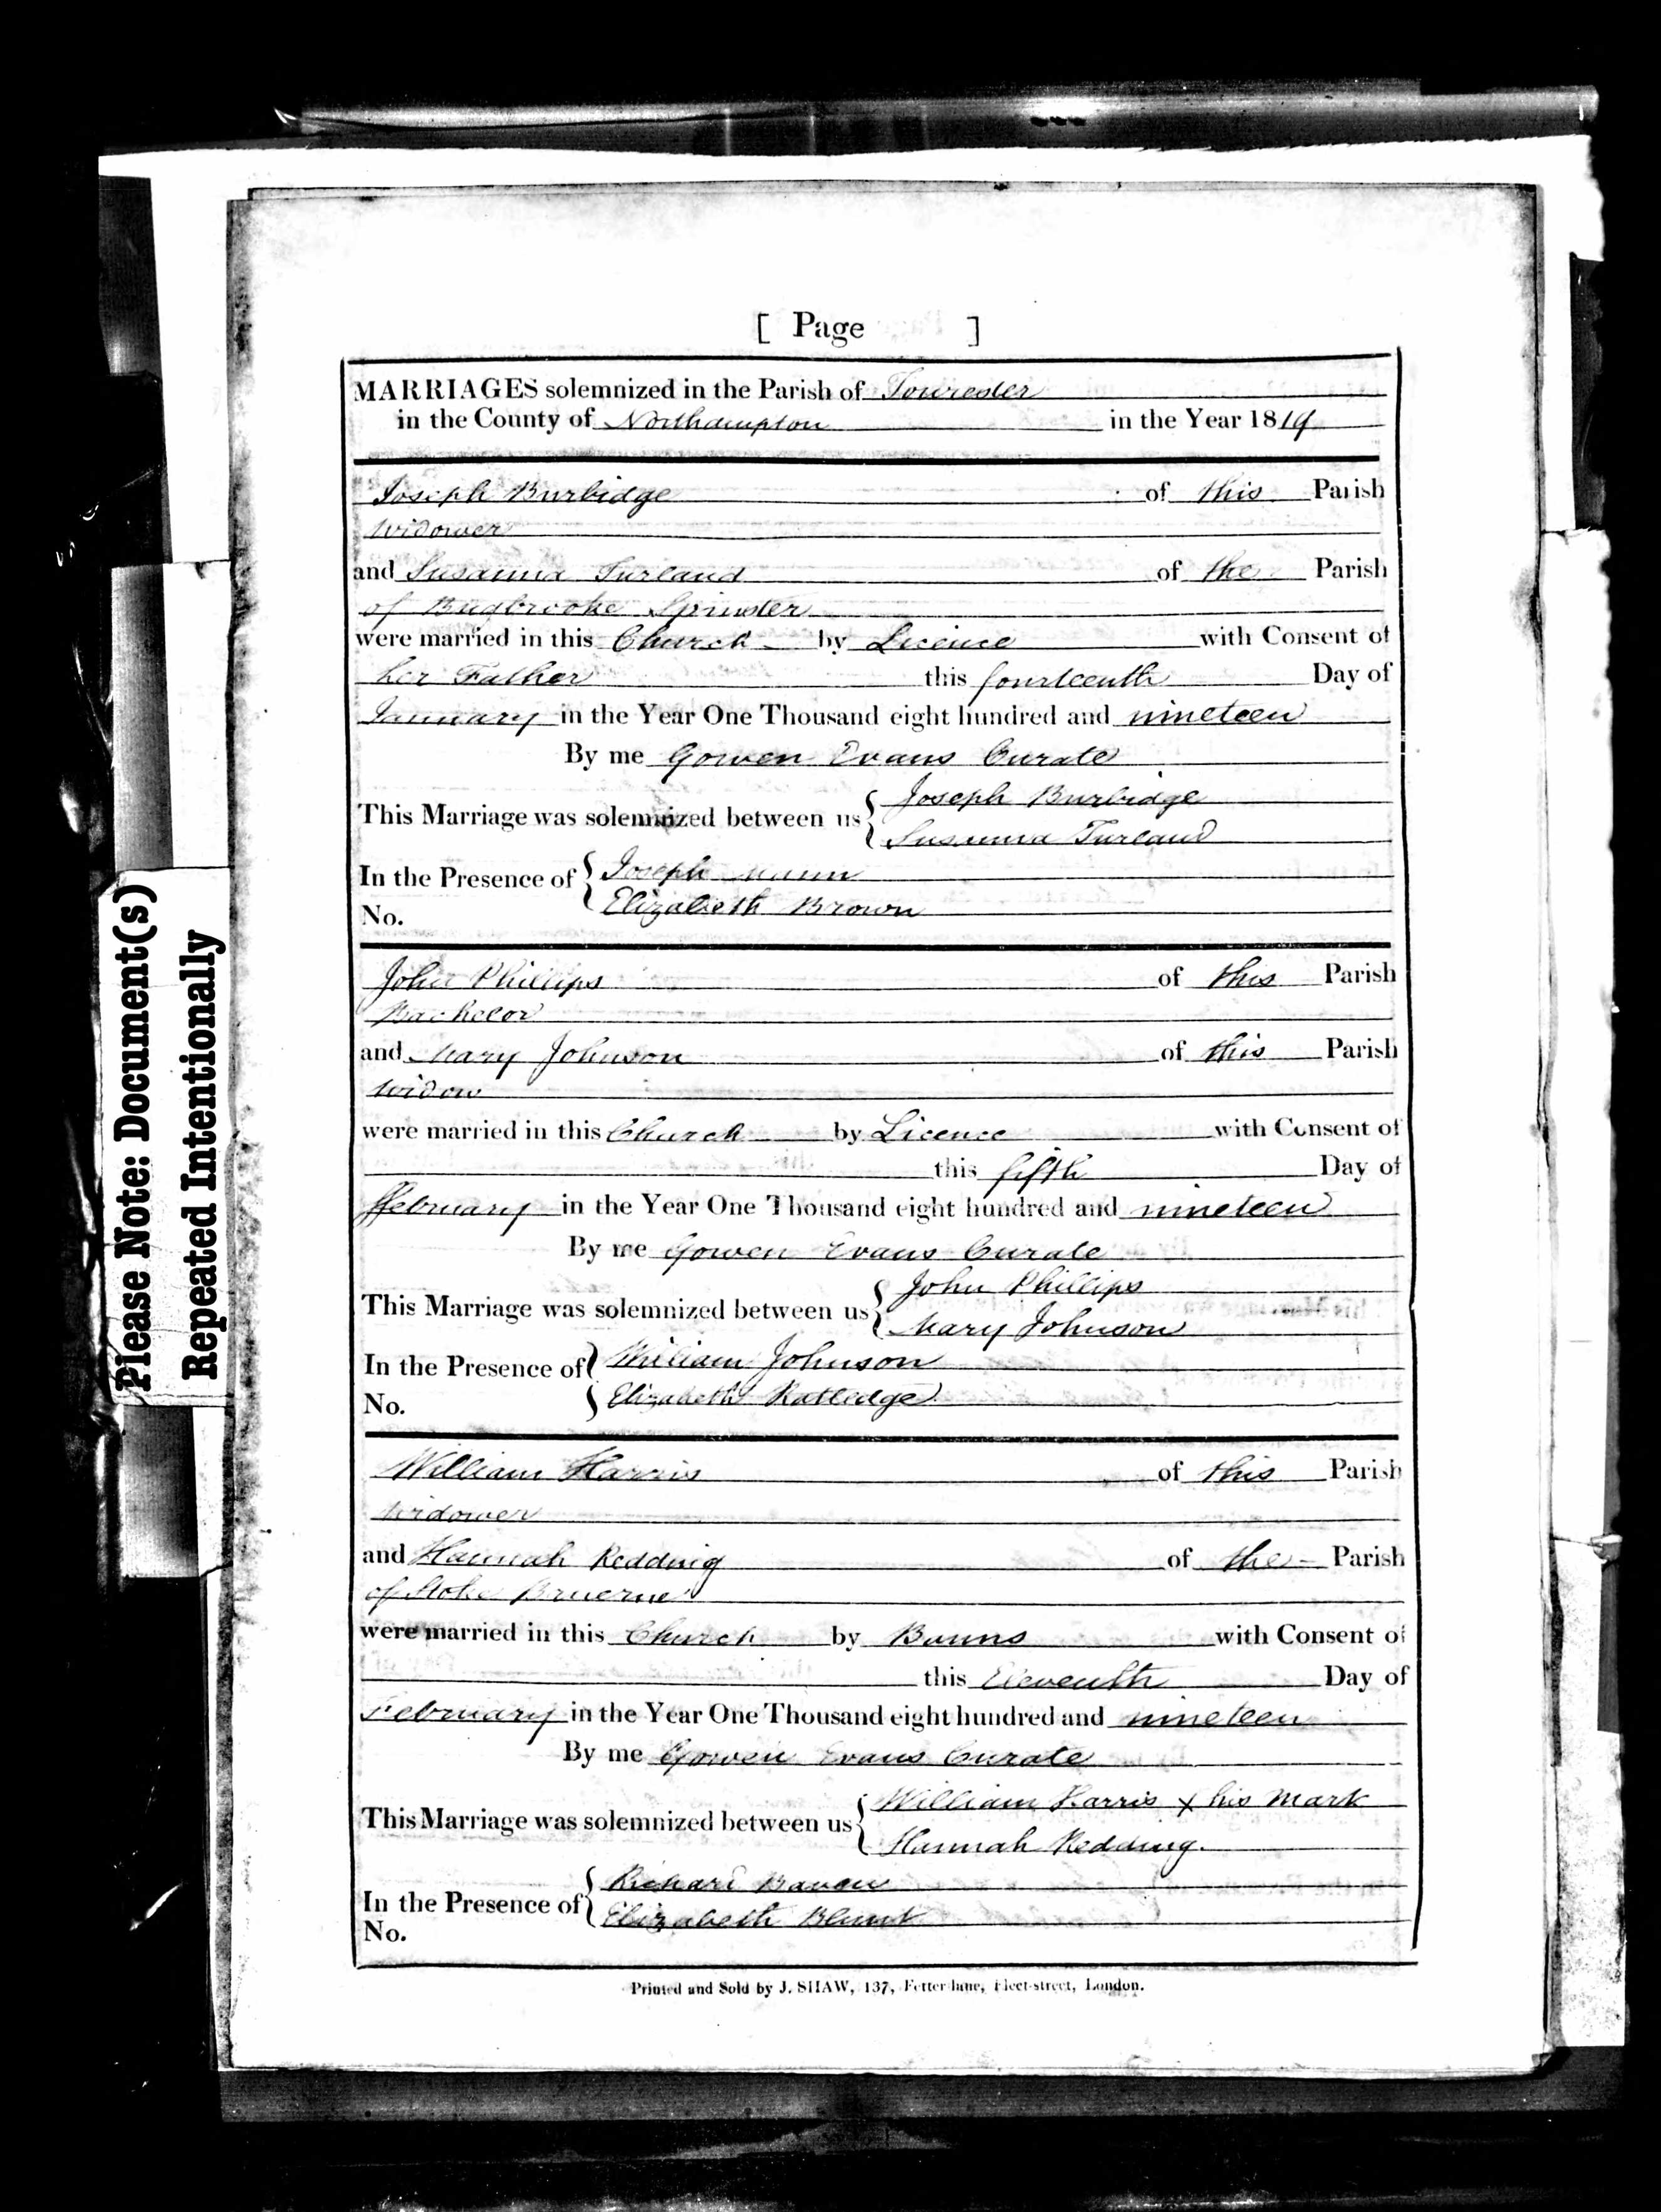 [ Page ]
MARRIAGES solemnized in the Parish of Towcester
in the County of Northampton in the Year 1819
Joseph Burbidge of this Parish
Widower
and Susanna Turland of the Parish
of Bugbrooke Spinster
were married in this Church by Licence with Consent of
her Father this fourteenth Day of
January in the Year One Thousand eight hundred and nineteen
By me Gowen Evans Curate
This Marriage was solemnized between us { Joseph Burbidge
Susanna Turland
In the Presence of { Joseph Mann
Elizabeth Brown
No.
John Phillips of this Parish
Bachelor
and Mary Johnson of this Parish
Widow
were married in this Church by Licence with Consent of
this fifth Day of
ffebruary in the Year One Thousand eight hundred and nineteen
By me Gowen Evans Curate
This Marriage was solemnized between us { John Phillips
Mary Johnson
In the Presence of { William Johnson
Elizabeth Ratledge
No.
William Harris of this Parish
Widower
and Hannah Redding of the Parish
of Stoke Bruerne
were married in this Church by Banns with Consent of
this Eleventh Day of
February in the Year One Thousand eight hundred and nineteen
By me Gowen Evans Curate
This Marriage was solemnized between us { William Harris x his Mark
Hannah Redding.
In the Presence of { Richard
Elizabeth Blunt
No.
Printed and Sold by J. SHAW, 137, Fetter-lane, Fleet-street, London.
Please Note: Document(s)
Repeated Intentionally